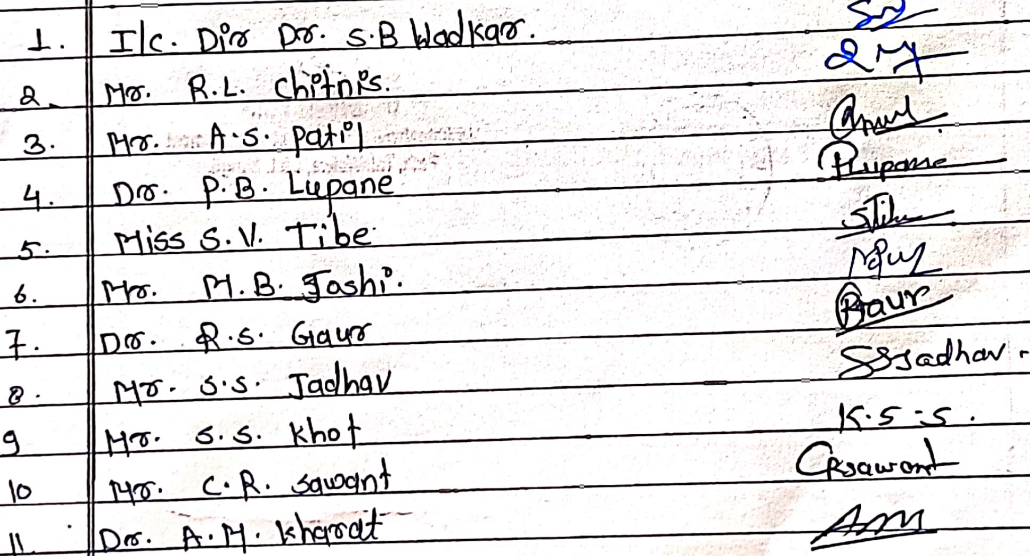 1. I/c. Dir Dr. S.B Wadkar.
2. Mr. R.L. Chitnis.
3. Mr. A.S. Patil
4. Dr. P.B. Lupane Plupane
5. Miss S.V. Tibe
6. Mr. M.B. Joshi.
7. Dr. R.S. Gaur RGaur
8. Mr. S.S. Jadhav SSJadhav.
9 Mr. S.S. Khot K.S.S.
10 Mr. C.R. Sawant CRSawant
11 Dr. A.M. Kharat